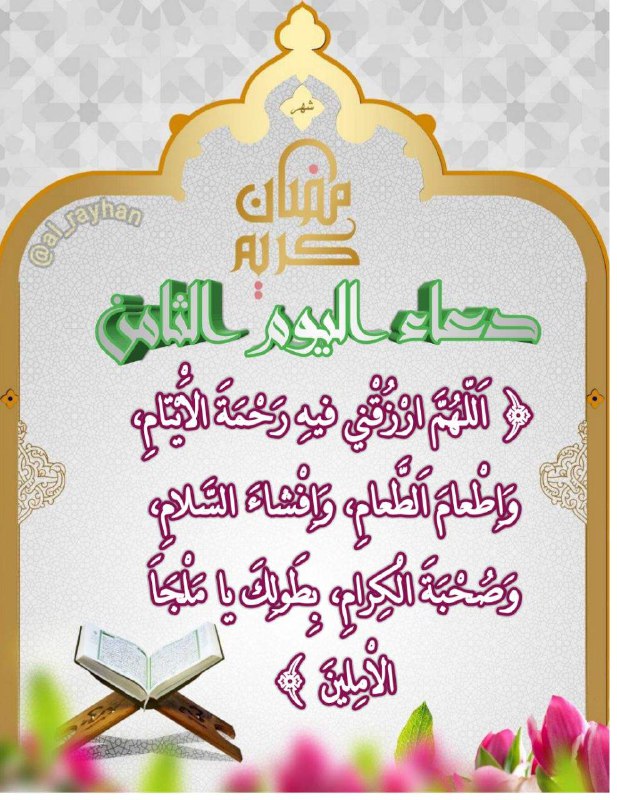 شهر
رمضان
كريم
@al_rayhan
دعاء اليوم الثامن
﴿ اَللّهُمَّ ارْزُقْني فيهِ رَحْمَةَ الْأَيْتامِ،
وَاِطْعامَ اَلطَّعامِ، وَاِفْشاءَ السَّلامِ،
وَصُحْبَةَ الْكِرامِ، بِطَولِكَ يا مَلْجَاَ
الْأمِلينَ ﴾